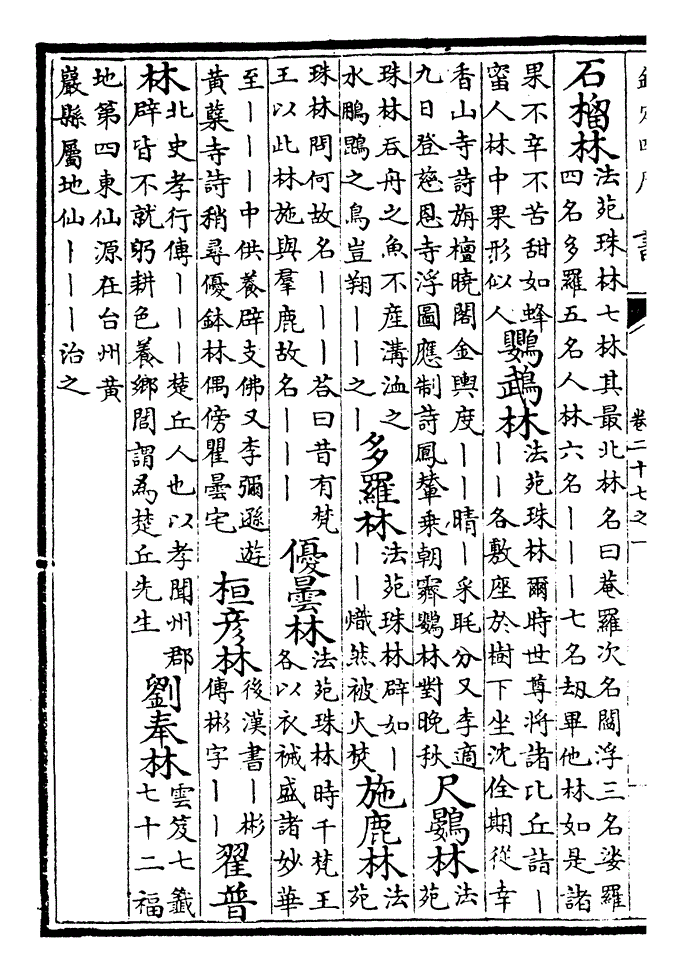 卷二十七之一
石榴林
法苑珠林七林其最北林名曰菴羅次名閻浮三名娑羅
四名多羅五名人林六名丨丨丨七名劫畢他林如是諸
果不辛不苦甜如蜂
蜜人林中果形似人
鸚鵡林
法苑珠林爾時世尊將諸比丘詣丨
丨丨各敷座於樹下坐沈佺期從幸
香山寺詩旃檀曉閣金輿度丨丨晴丨采眊分又李適
九日登慈恩寺浮圖應制詩鳳輦乘朝霽鸚林對晚秋
尺鷃林
法
苑
珠林吞舟之魚不產溝洫之
水鵬鵾之鳥豈翔丨丨丨之丨
多羅林
法苑珠林辟如丨
丨丨熾然被火焚
施鹿林
法
苑
珠林問何故名丨丨丨荅曰昔有梵
王以此林施與羣鹿故名丨丨丨
優曇林
法苑珠林時千梵王
各以衣裓盛諸妙華
至丨丨丨中供養辟支佛又李彌遜遊
黃蘗寺詩稍尋優鉢林偶傍瞿曇宅
桓彥林
後漢書丨彬
傳彬字丨丨
翟普
林
北史孝行傳丨丨丨楚丘人也以孝聞州郡
辟皆不就躬耕色養鄉閭謂為楚丘先生
劉奉林
雲笈七籤
七十二福
地第四東仙源在台州黃
巖縣屬地仙丨丨丨治之